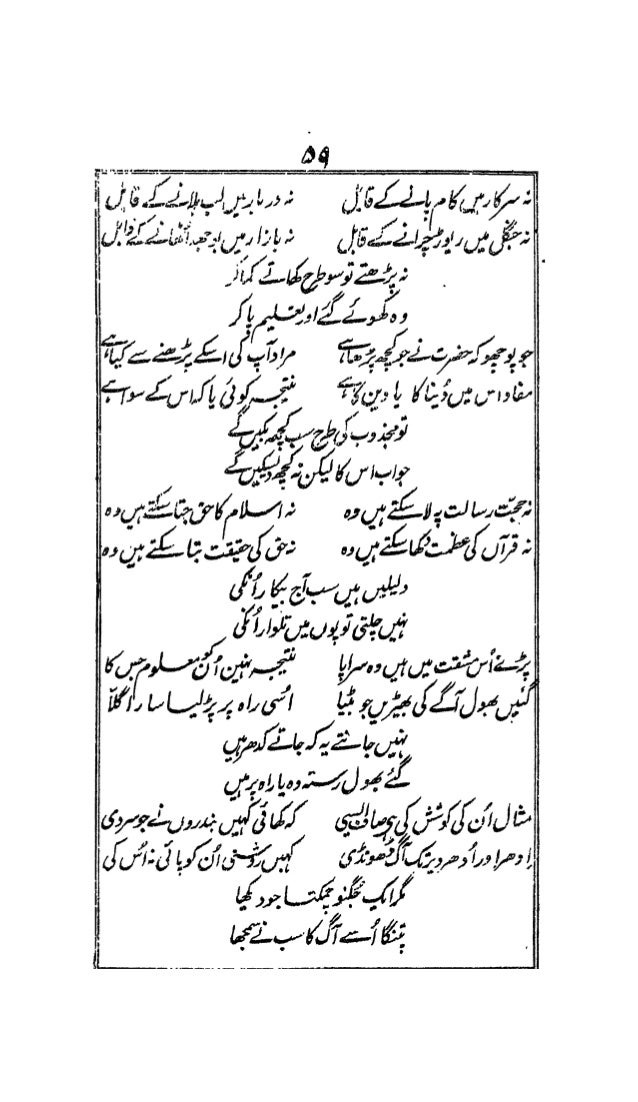 ۵۹
نہ سرکار میں کام پانے کے قابل نہ دربار میں لب ہلانے کے قابل
نہ جنگل میں ریوڑ چرانے کے قابل نہ بازار میں بوجھ اٹھانے کے قابل
نہ پڑھتے تو سو طرح کھاتے کما کر
وہ کھوئے گئے اور تعلیم پا کر
جو پوچھو کہ حضرت نے جو کچھ پڑھا ہے مراد آپ کی اسکے پڑھنے سے کیا ہے
مفاد اس میں دُنیا کا یا دین کا ہے نتیجہ کوئی یا کہ اس کے سوا ہے
تو مجذوب کی طرح سب کچھ بکیں گے
جواب اس کا لیکن نہ کچھ دیسکیں گے
نہ حجت رسالت پہ لا سکتے ہیں وہ نہ اسلام کا حق جتا سکتے ہیں وہ
نہ قرآں کی عظمت دکھا سکتے ہیں وہ نہ حق کی حقیقت بتا سکتے ہیں وہ
دلیلیں ہیں سب آج بیکار اُنکی
نہیں چلتی توپوں میں تلوار اُنکی
پڑے اُس مشقت میں ہیں وہ سراپا نتیجہ نہیں اُن کو معلوم جس کا
گئیں بھول آگے کی بھیڑیں جو بٹیا اُسی راہ پر پڑ لیا سارا گلّا
نہیں جانتے یہ کہ جاتے کدھر ہیں
گئے بھول رستہ وہ یا راہ پر ہیں
مثال اُن کی کوشش کی ہے صاف ایسی کہ کھائی کہیں بندروں نے جو سردی
اِدھر اور اُدھر دیر تک آگ ڈھونڈی کہیں روشنی اُن کو پائی نہ اُس کی
مگر ایک جگنو چمکتا جو دیکھا
پتنگا اُسے آگ کا سب نے سمجھا